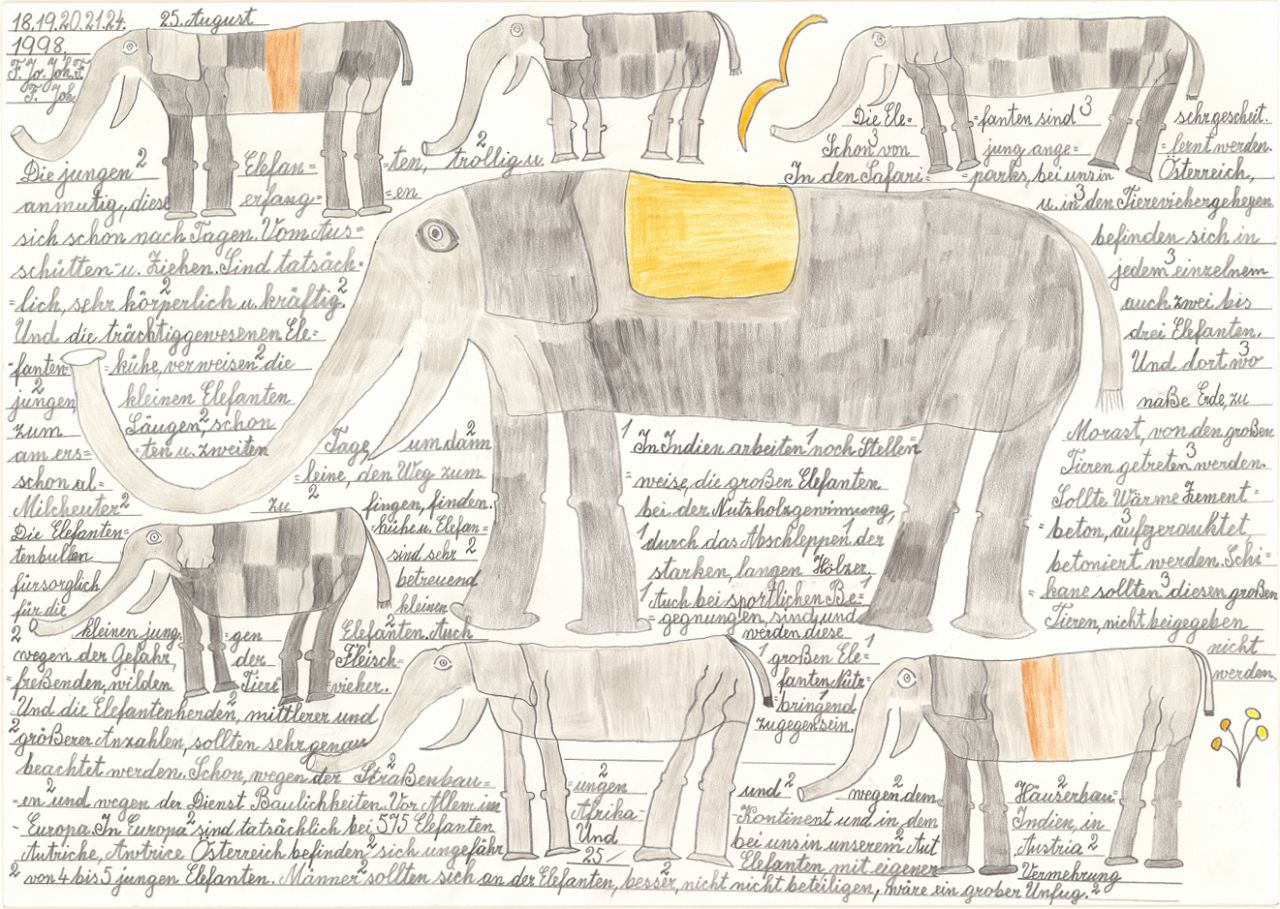 18.19.20.21.24. 25. August
1998.
Die jungen 2 Elefan= =ten, 2 trollig u.
anmutig, diese erfang= =en
sich schon nach Tagen. Vom Aus=
schütten- u. Ziehen. Sind tatsäch=
=lich, sehr körperlich 2 u. kräftig. 2
Und die trächtiggewesenen Ele=
=fanten= =kühe, verweisen 2 die
jungen, 2 kleinen Elefanten
zum Säugen, 2 schon
am ers= =ten u. zweiten Tag, um dann 2
schon al= =leine, den Weg zum
Milcheuter 2 zu 2 fingen, finden.
Die Elefanten= =kühe u. Elefan=
tenbullen sind sehr 2
fürsorglich betreuend
für die kleinen
2 kleinen jung= =gen 2 Elefanten. Auch
wegen der Gefahr, der Fleisch=
freßenden, wilden Tier= =vieher.
Und die Elefantenherden, 2 mittlerer und
2 größerer Anzahlen, sollten sehr genau
beachtet werden. Schon, wegen der Straßenbau= 2
=en 2 und wegen der Dienst Baulichkeiten. Vor Allem im
=Europa. In Europa 2 sind tatsächlich bei 575 Elefanten
Autriche, Antrice Österreich befinden 2 sich ungefähr
2 von 4 bis 5 jungen Elefanten. Männer 2 sollten sich an der Elefanten, besser, 2 nicht nicht beteiligen, wäre ein grober Unfug. 2
=ungen 2 und 2 wegen 2 dem Häuserbau= 2
Afrika= =Kontinent und in dem Indien, in
Und bei uns in unserem 2 Aut Austria 2
25 Elefanten mit eigener Vermehrung
1 In Indien arbeiten 1 noch Stellen=
=weise, die großen Elefanten
bei der Nutzholzgewinnung,
1 durch das Abschleppen 1 der
starken, langen Hölzer.
1 Auch bei sportlichen Be= 1
=gegnungen, sind und
werden diese
1 großen Ele= 1
=fanten Nutz=
=bringend 1
zugegen sein.
Die Ele= =fanten sind 3 sehr gescheit.
Schon 3 von jung ange= =lernt werden.
In den Safari= =parks, bei uns in Österreich,
u. in 3 den Tierevichergehegen
befinden sich in
jedem 3 einzelnem
auch zwei bis
drei Elefanten.
Und dort wo 3
naße Erde, zu
Morast, von den großen
Tieren getreten 3 werden.
Sollte Wärme Zement=
=beton, 3 aufgerauktet
betoniert werden. Schi=
=kane sollten 3 diesen großen
Tieren, nicht beigegeben
nicht
werden.